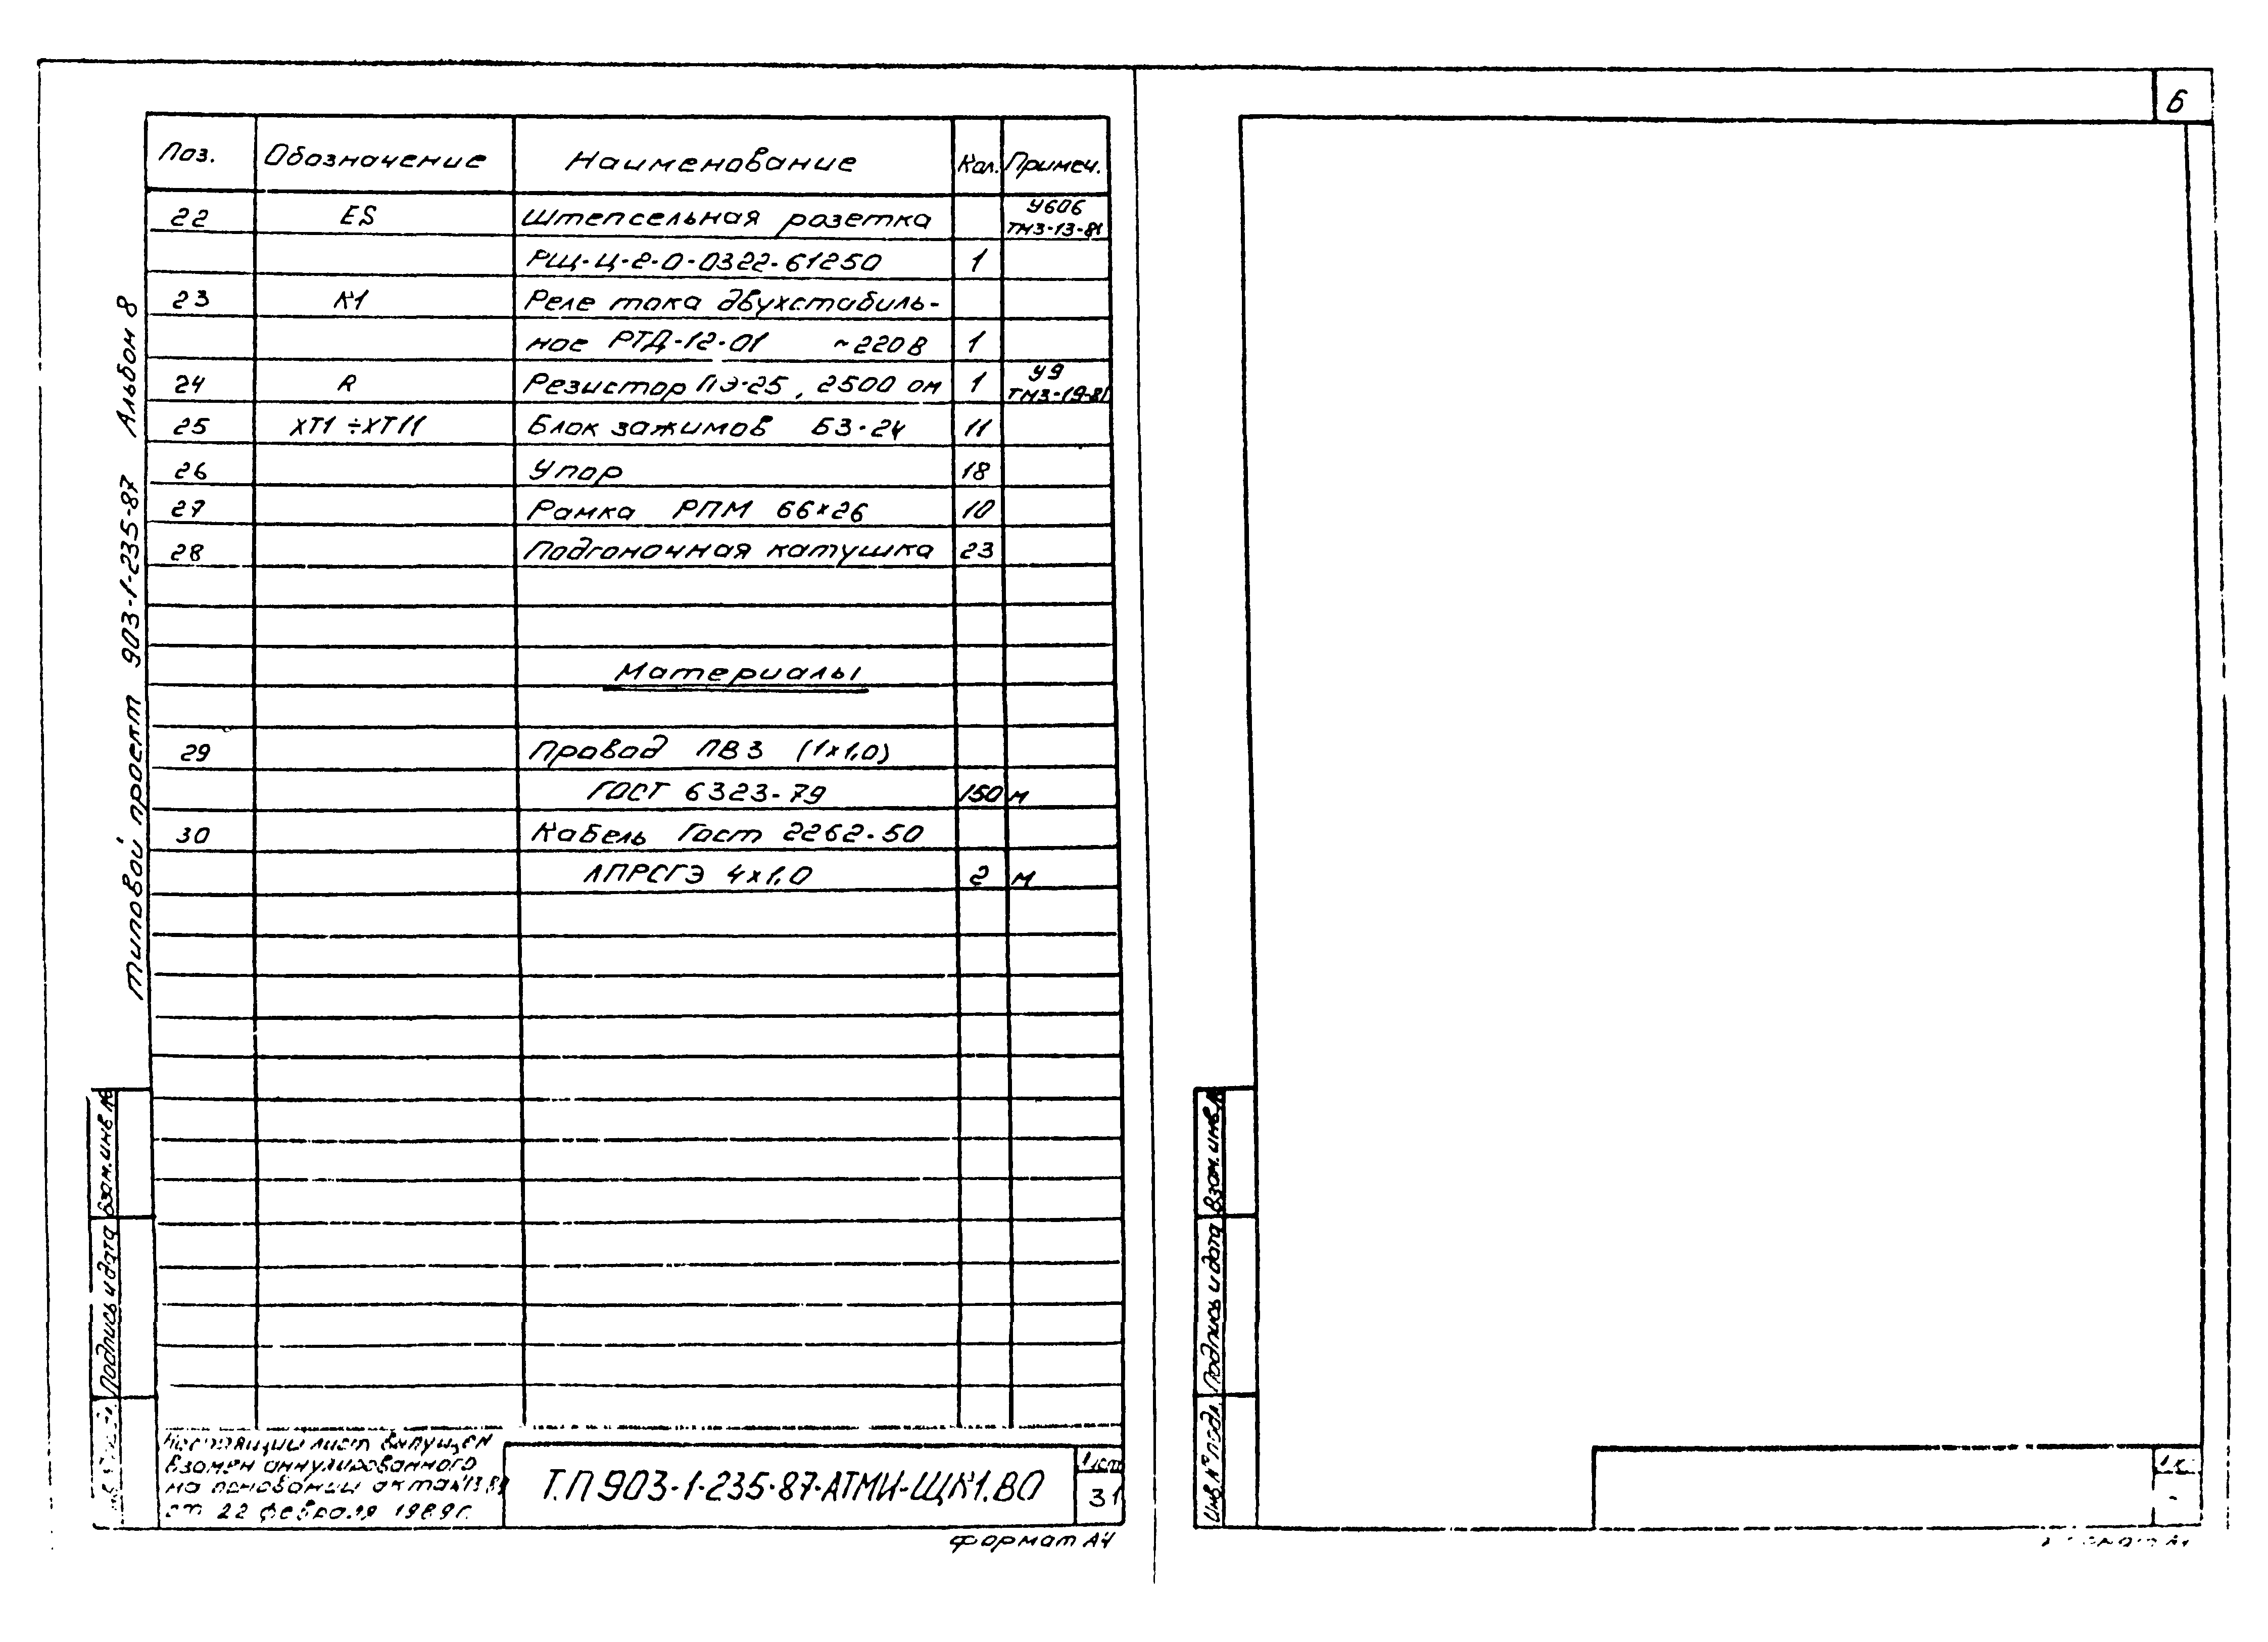 6
Поз. Обозначение Наименование Кол. Примеч.
22 ES Штепсельная розетка У606 ТМ3-13-81
РЩ-Ц-2-0-0322-61250 1
23 К1 Реле тока двухстабиль-
ное РТД-12-01 ~220В 1
24 R Резистор ПЭ-25, 2500 ом 1 У9 ТМ3-19-81
25 ХТ1÷ХТ11 Блок зажимов БЗ-24 11
26 Упор 18
27 Рамка РПМ 66×26 10
28 Подгоночная катушка 23
Материалы
29 Провод ПВ3 (1×1,0)
ГОСТ 6323-79 150 м
30 Кабель Гост 2262-50
ЛПРСГЭ 4×1,0 2 м
Типовой проект 903-1-235-87 Альбом 8
Взам. инв №
Подпись и дата
Настоящий лист выпущен
взамен аннулированного
на основании акта
от 22 февраля 1989г.
Т.П 903-1-235-87-АТМИ-ЩК1.ВО
Лист
31
формат А4
Взам. инв №
Подпись и дата
Инв. № подл.